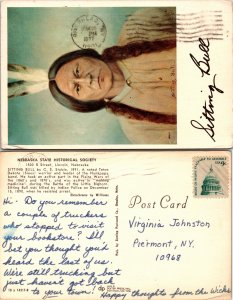 Sitting Bull
NEBRASKA STATE HISTORICAL SOCIETY
1500 R Street, Lincoln, Nebraska
SITTING BULL by C. S. Stobie, 1891. A noted Teton
Dakota (Sioux) warrior and leader of the Hunkpapa
band. He took an active part in the Plains Wars of
the 1860's and 1870's and was active in "making
medicine" during the Battle of the Little Bighorn.
Sitting Bull was killed by Indian Police on December
15, 1890, when he resisted arrest.
Hi - Do you remember
a couple of truckers
who stopped to visit
your bookstore? I'll
bet you thought you'd
heard the last of us.
We're still trucking but
just haven't got back
to your town!
Happy thoughts from the
Post Card
Virginia Johnston
Piermont, N.Y.
10968